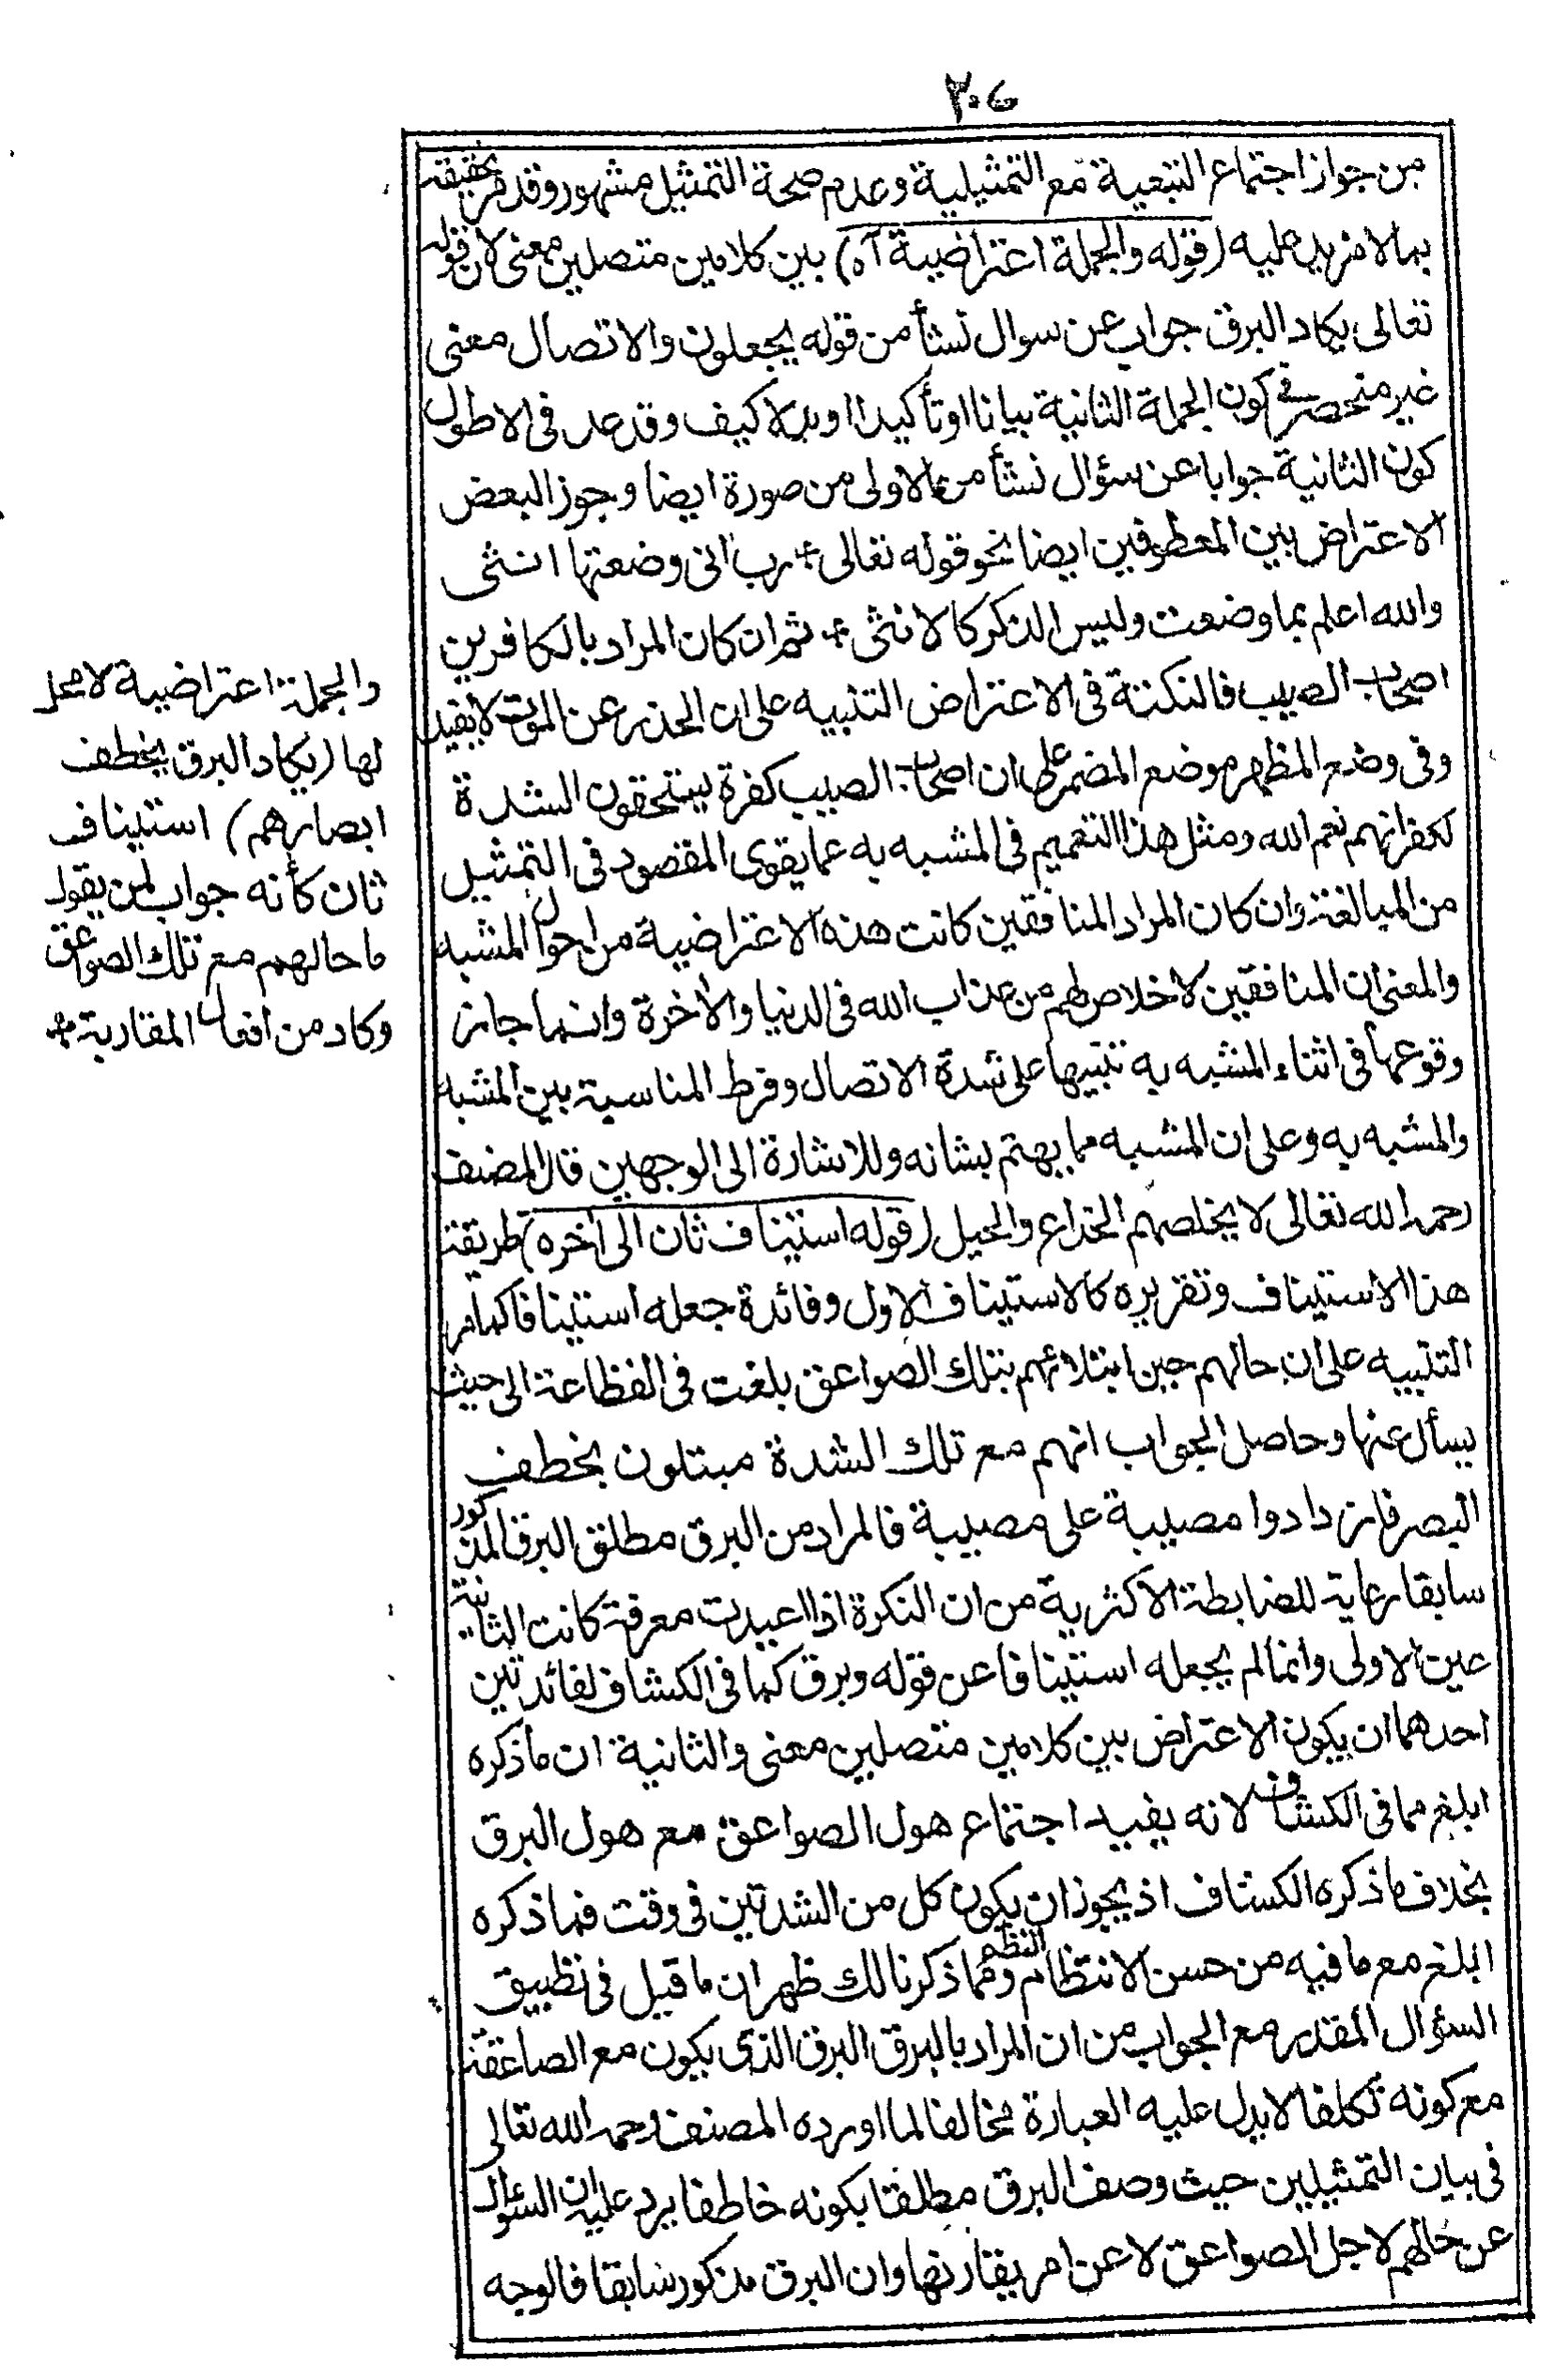 ٢٠٦
من جواز اجتماع التبعية مع التمثيلية وعدم صحة التمثيل مشهور وقد مر تحقيقه
بما لا مزيد عليه (قوله والجملة اعتراضية آه) بين كلامين متصلين معنى لان قوله
تعالى يكاد البرق جواب عن سوال نشأ من قوله يجعلون والاتصال معنى
غير منحصر في كون الجملة الثانية بيانا او تأكيدا او بدلا كيف وقد عد فى الاطول
كون الثانية جوابا عن سؤال نشأ من الاولى من صورة ايضا وجوز البعض
الاعتراض بين المعطوفين ايضا نحو قوله تعالى + رب انى وضعتها انثى
والله اعلم بما وضعت وليس الذكر كالانثى + ثم ان كان المراد بالكافرين
اصحاب الصيب فالنكتة فى الاعتراض التنبيه على ان الحذر عن الموت لا يفيد
وفى وضع المظهر موضع المضمر على ان اصحاب الصيب كفرة يستحقون الشدة
لكفرانهم نعم الله ومثل هذا التعميم فى المشبه به مما يقوى المقصود فى التمثيل
من المبالغة وان كان المراد المنافقين كانت هذه الاعتراضية من احوال المشبه
والمعنى ان المنافقين لا خلاص لهم من عذاب الله فى الدنيا والاخرة وانما جاز
وقوعها فى اثناء المشبه به تنبيها على شدة الاتصال وفرط المناسبة بين المشبه
والمشبه به وعلى ان المشبه مما يهتم بشانه وللاشارة الى الوجهين قال المصنف
رحمه الله تعالى لا يخلصهم الخداع والحيل (قوله استيناف ثان الى اخره) طريقة
هذا الاستيناف وتقريره كالاستيناف الاول وفائدة جعله استينافا كما مر
التنبيه على ان حالهم حين ابتلائهم بتلك الصواعق بلغت فى الفظاعة الى حيث
يسأل عنها وحاصل الجواب انهم مع تلك الشدة مبتلون بخطف
البصر فازدادوا مصيبة على مصيبة فالمراد من البرق مطلق البرق المذكور
سابقا رعاية للضابطة الاكثرية من ان النكرة اذا اعيدت معرفة كانت الثانية
عين الاولى وانما لم يجعله استينافا عن قوله وبرق كما فى الكشاف لفائدتين
احدهما ان يكون الاعتراض بين كلامين متصلين معنى والثانية ان ما ذكره
ابلغ مما فى الكشاف لانه يفيد اجتماع هول الصواعق مع هول البرق
بخلاف ما ذكره الكشاف اذ يجوز ان يكون كل من الشدتين فى وقت فما ذكره
ابلغ مع ما فيه من حسن الانتظام النظم ومما ذكرنا لك ظهر ان ما قيل فى تطبيق
السؤال المقدر مع الجواب من ان المراد بالبرق البرق الذى يكون مع الصاعقة
مع كونه تكلفا لا يدل عليه العبارة مخالفا لما اورده المصنف رحمه الله تعالى
فى بيان التمثيلين حيث وصف البرق مطلقا بكونه خاطفا يرد عليه ان السؤال
عن حالهم لاجل الصواعق لا عن امر يقارنها وان البرق مذكور سابقا فالوجه
والجملة اعتراضية لا محل
لها (يكاد البرق يخطف
ابصارهم) استيناف
ثان كأنه جواب لمن يقول
ما حالهم مع تلك الصواعق
وكاد من افعال المقاربة +